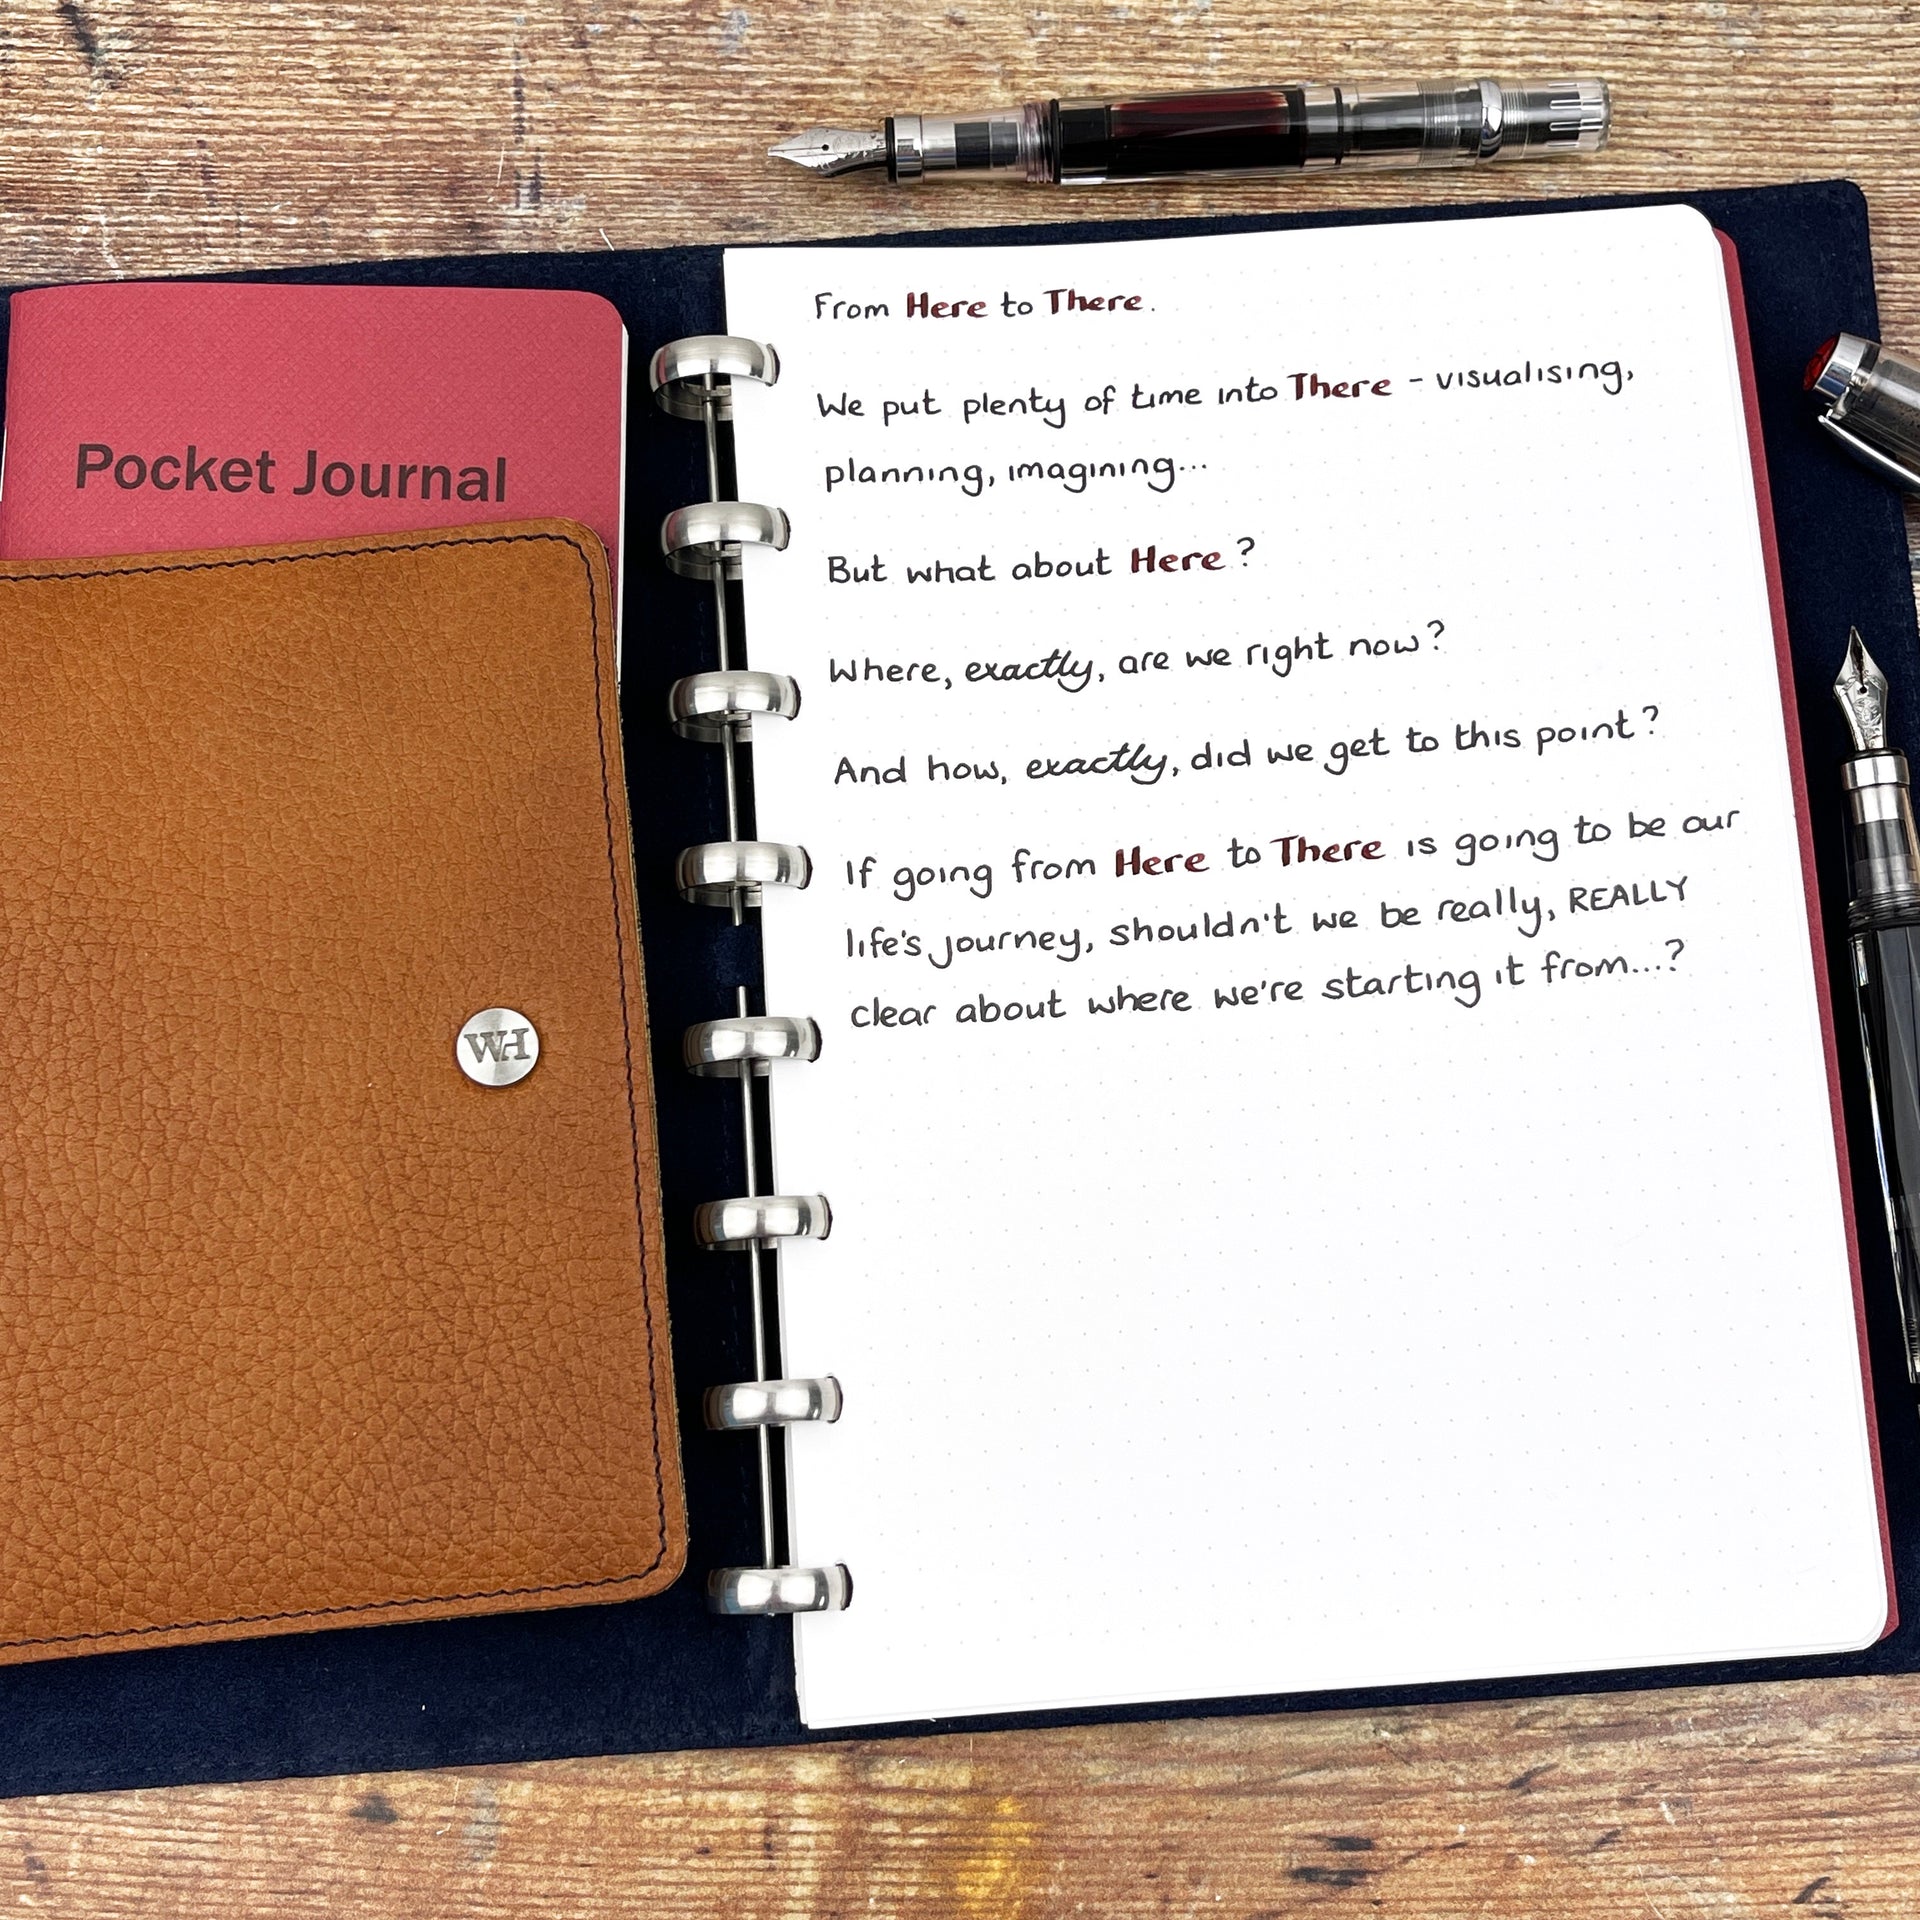 Pocket Journal
WH
From Here to There.
We put plenty of time into There - visualising,
planning, imagining...
But what about Here?
Where, exactly, are we right now?
And how, exactly, did we get to this point?
If going from Here to There is going to be our
life's journey, shouldn't we be really, REALLY
clear about where we're starting it from...?